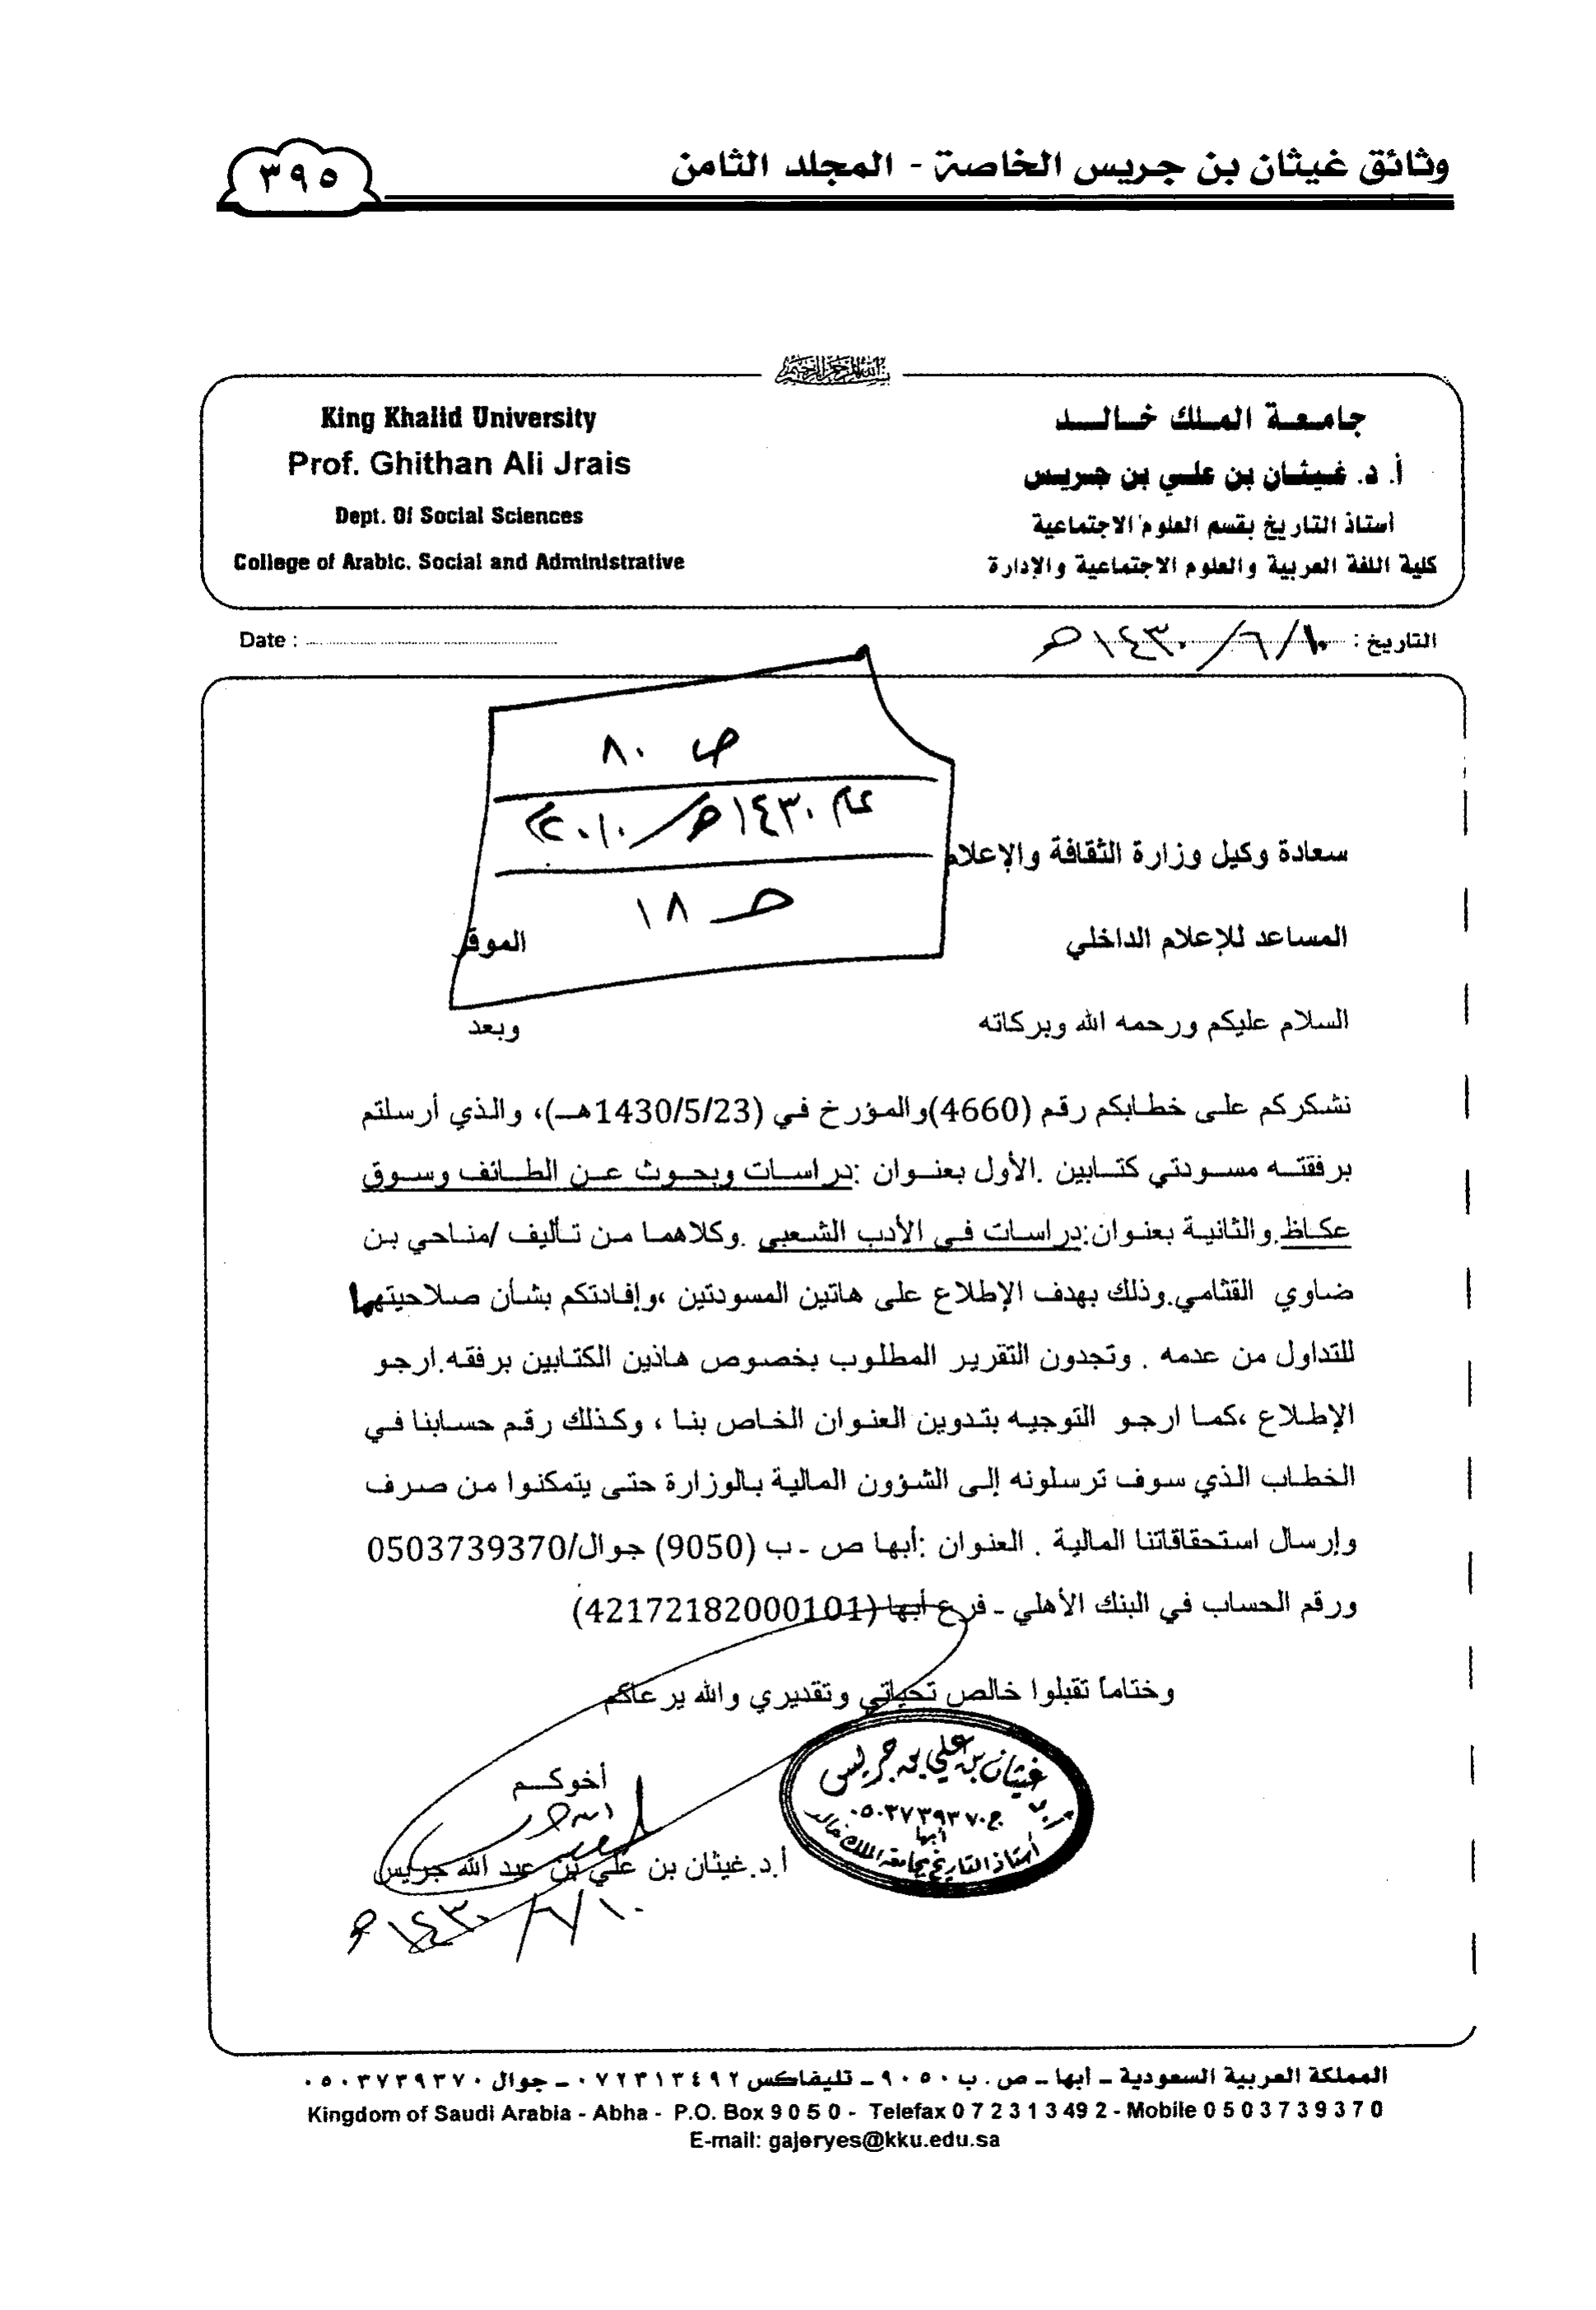 وثائق غيثان بن جريس الخاصة - المجلد الثامن
٣٩٥
بسم الله الرحمن الرحيم
جامعة الملك خالد
أ. د. غيثان بن علي بن جريس
أستاذ التاريخ بقسم العلوم الاجتماعية
كلية اللغة العربية والعلوم الاجتماعية والإدارة
King Khalid University
Prof. Ghithan Ali Jrais
Dept. Of Social Sciences
College of Arabic. Social and Administrative
التاريخ : ١٠/٦/١٤٣٠هـ
Date :
ص ٨٠
عام ١٤٣٠هـ/٢٠١٠م
ص ١٨
سعادة وكيل وزارة الثقافة والإعلام
المساعد للإعلام الداخلي الموقر
السلام عليكم ورحمه الله وبركاته وبعد
نشكركم على خطابكم رقم (4660)والمؤرخ في (1430/5/23هـ)، والذي أرسلتم
برفقته مسودتي كتابين .الأول بعنوان :دراسات وبحوث عن الطائف وسوق
عكاظ.والثانية بعنوان:دراسات في الأدب الشعبي .وكلاهما من تأليف /مناحي بن
ضاوي القثامي.وذلك بهدف الإطلاع على هاتين المسودتين ،وإفادتكم بشأن صلاحيتهما
للتداول من عدمه . وتجدون التقرير المطلوب بخصوص هاذين الكتابين برفقه.ارجو
الإطلاع ،كما ارجو التوجيه بتدوين العنوان الخاص بنا ، وكذلك رقم حسابنا في
الخطاب الذي سوف ترسلونه إلى الشؤون المالية بالوزارة حتى يتمكنوا من صرف
وإرسال استحقاقاتنا المالية . العنوان :أبها ص - ب (9050) جوال/0503739370
ورقم الحساب في البنك الأهلي - فرع أبها (42172182000101)
وختاماً تقبلوا خالص تحياتي وتقديري والله يرعاكم
أخوكم
أ.د.غيثان بن علي بن عبد الله جريس
١٠/٦/١٤٣٠هـ
أ.د غيثان بن علي بن جريس
ج.٠٥٠٣٧٣٩٣٧٠
أبها
أستاذ التاريخ بجامعة الملك خالد
المملكة العربية السعودية – أبها – ص . ب ٩٠٥٠ – تليفاكس ٠٧٢٣١٣٤٩٢ – جوال ٠٥٠٣٧٣٩٣٧٠
Kingdom of Saudi Arabia - Abha - P.O. Box 9 0 5 0 - Telefax 0 7 2 3 1 3 49 2 - Mobile 0 5 0 3 7 3 9 3 7 0
E-mail: gajeryes@kku.edu.sa